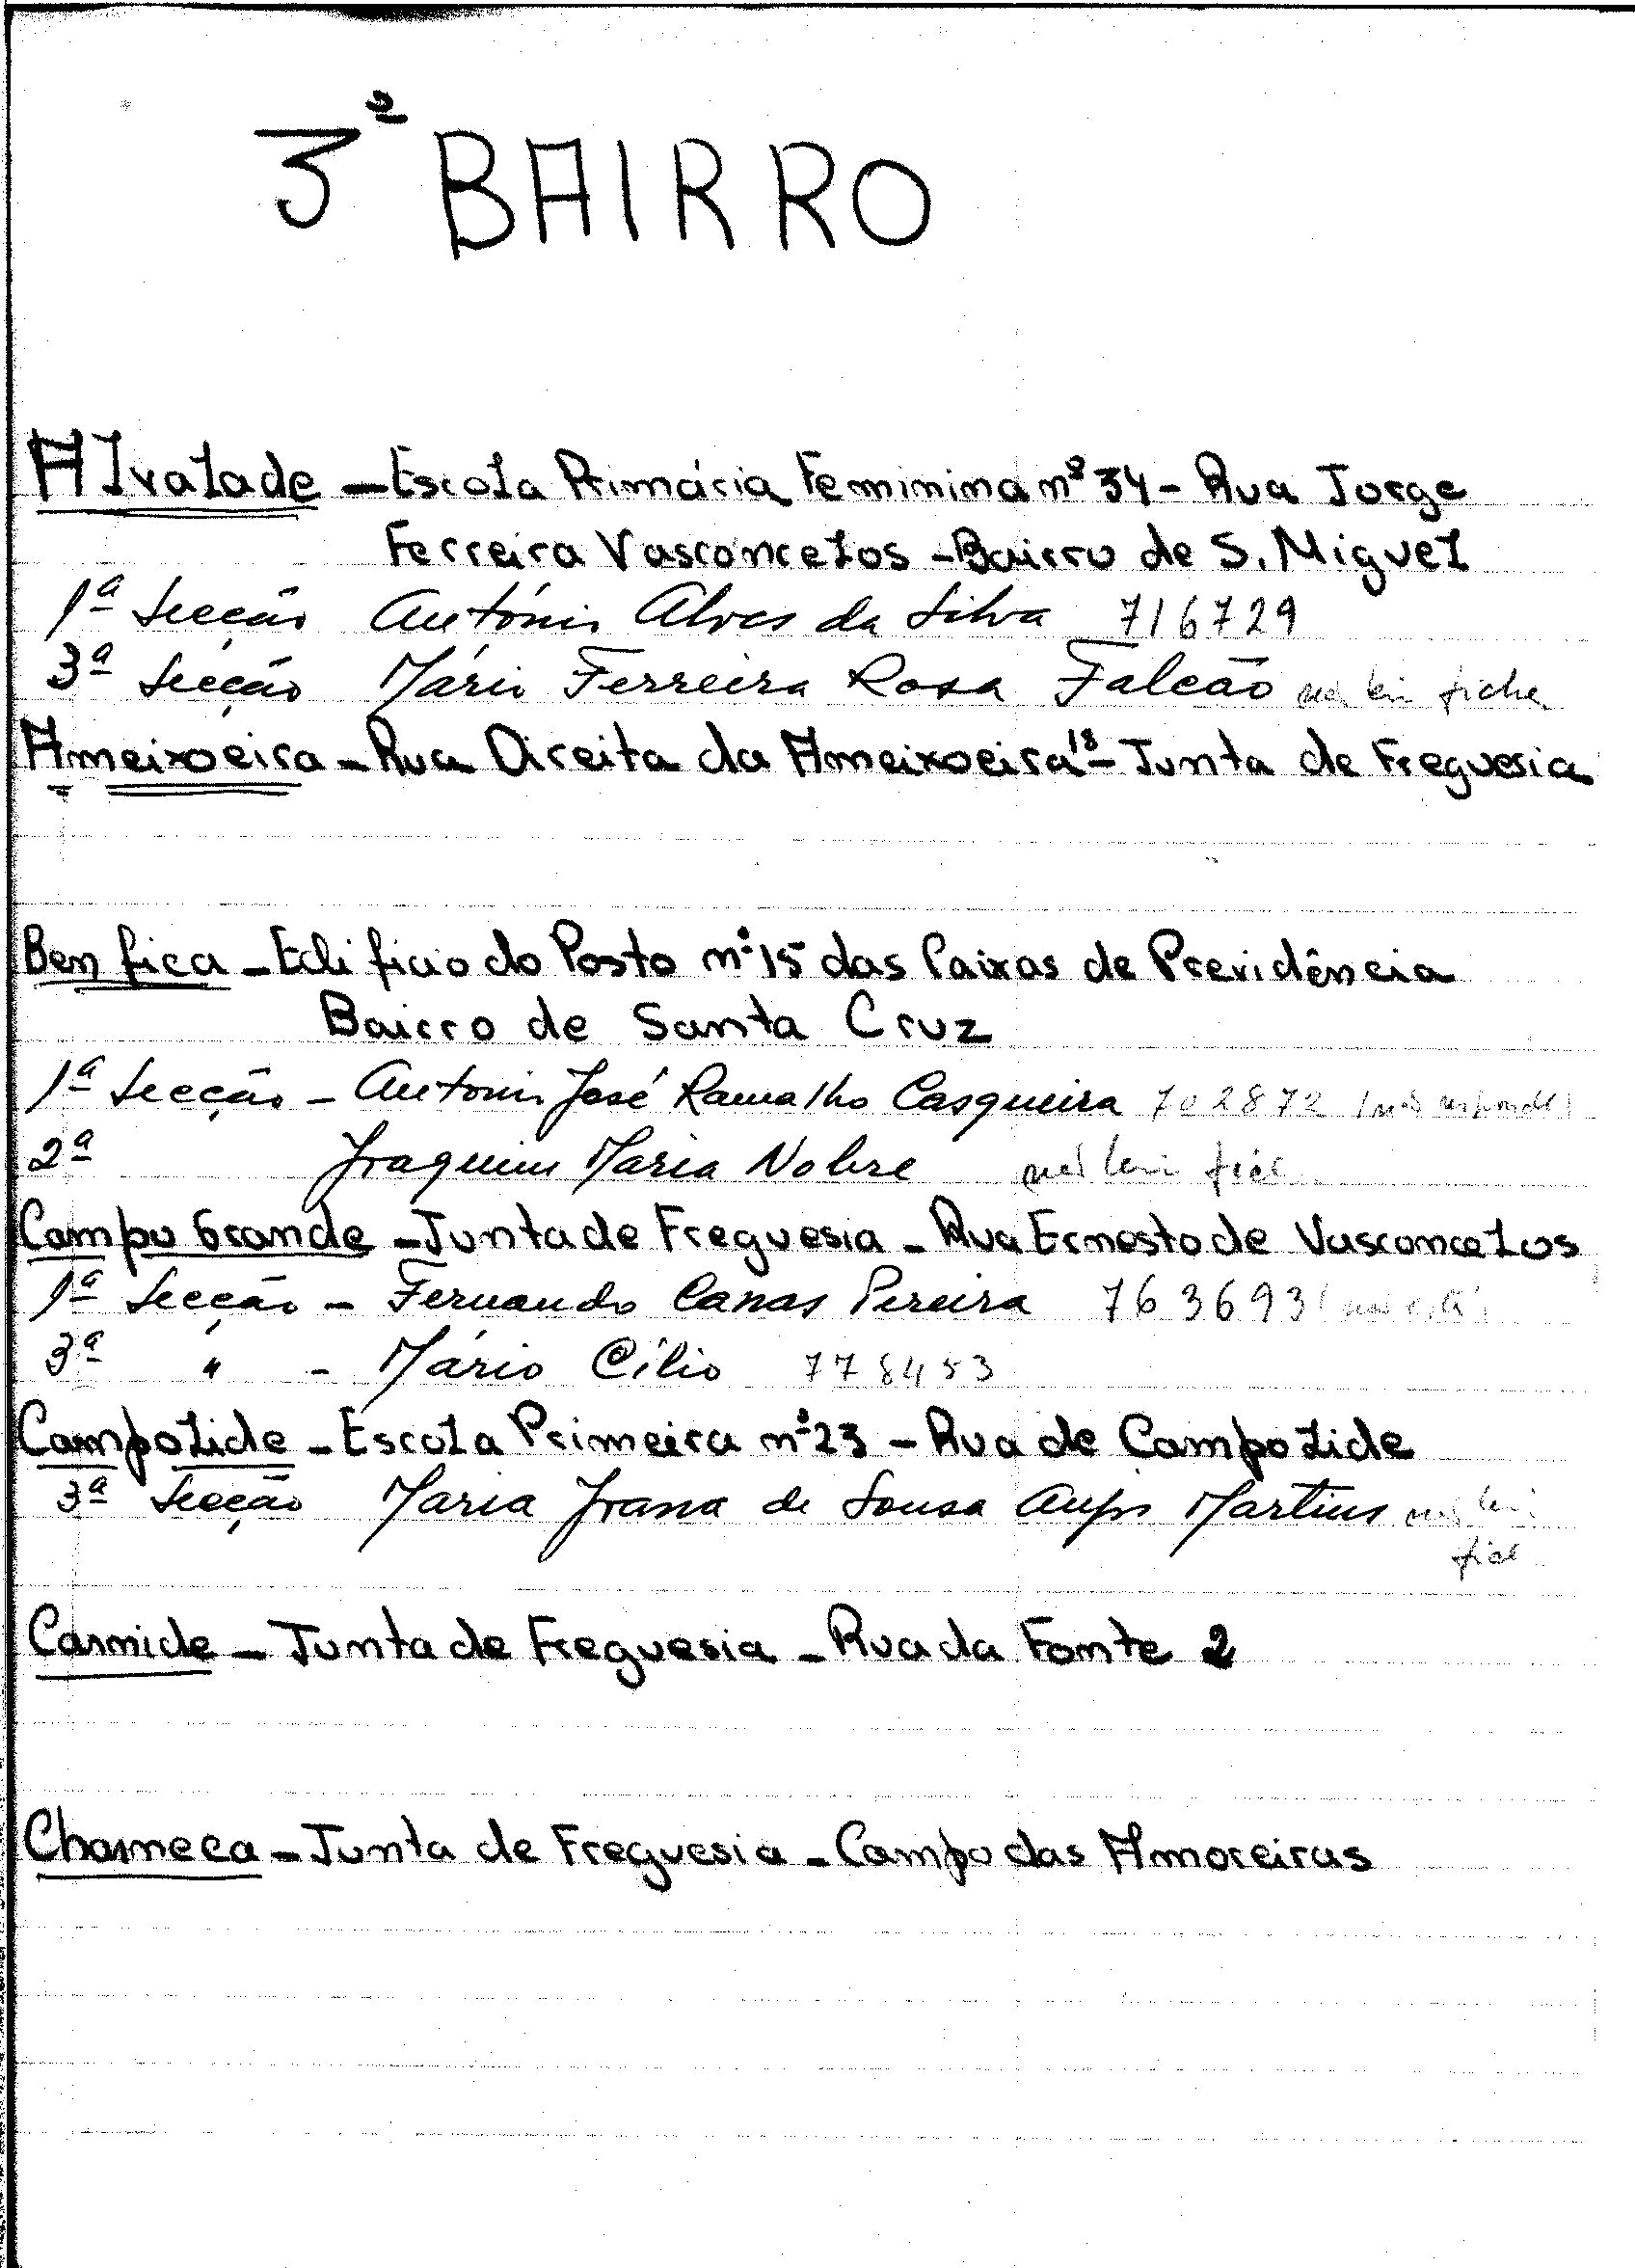 3º BAIRRO
Alvalade - Escola Primária Feminina nº 34 - Rua Jorge
Ferreira Vasconcelos - Bairro de S. Miguel
1ª Secção António Alves da Silva 716729
3ª Secção Mário Ferreira Rosa Falcão não tem ficha
Ameixoeira - Rua Direita da Ameixoeira 18 - Junta de Freguesia
Benfica - Edificio do Posto nº 15 das Caixas de Previdência
Bairro de Santa Cruz
1ª Secção - António José Ramalho Casqueira 702872 (não responde)
2ª Joaquim Maria Nobre não tem
Campo Grande - Junta de Freguesia - Rua Ernesto de Vasconcelos
1ª Secção - Fernando Canas Pereira 763693 (não está)
3ª " - Mário Cílio 778453
Campolide - Escola Primeira nº 23 - Rua de Campolide
3ª Secção Maria Joana de Sousa Martins não tem
Carnide - Junta de Freguesia - Rua da Fonte 2
Charneca - Junta de Freguesia - Campo das Amoreiras